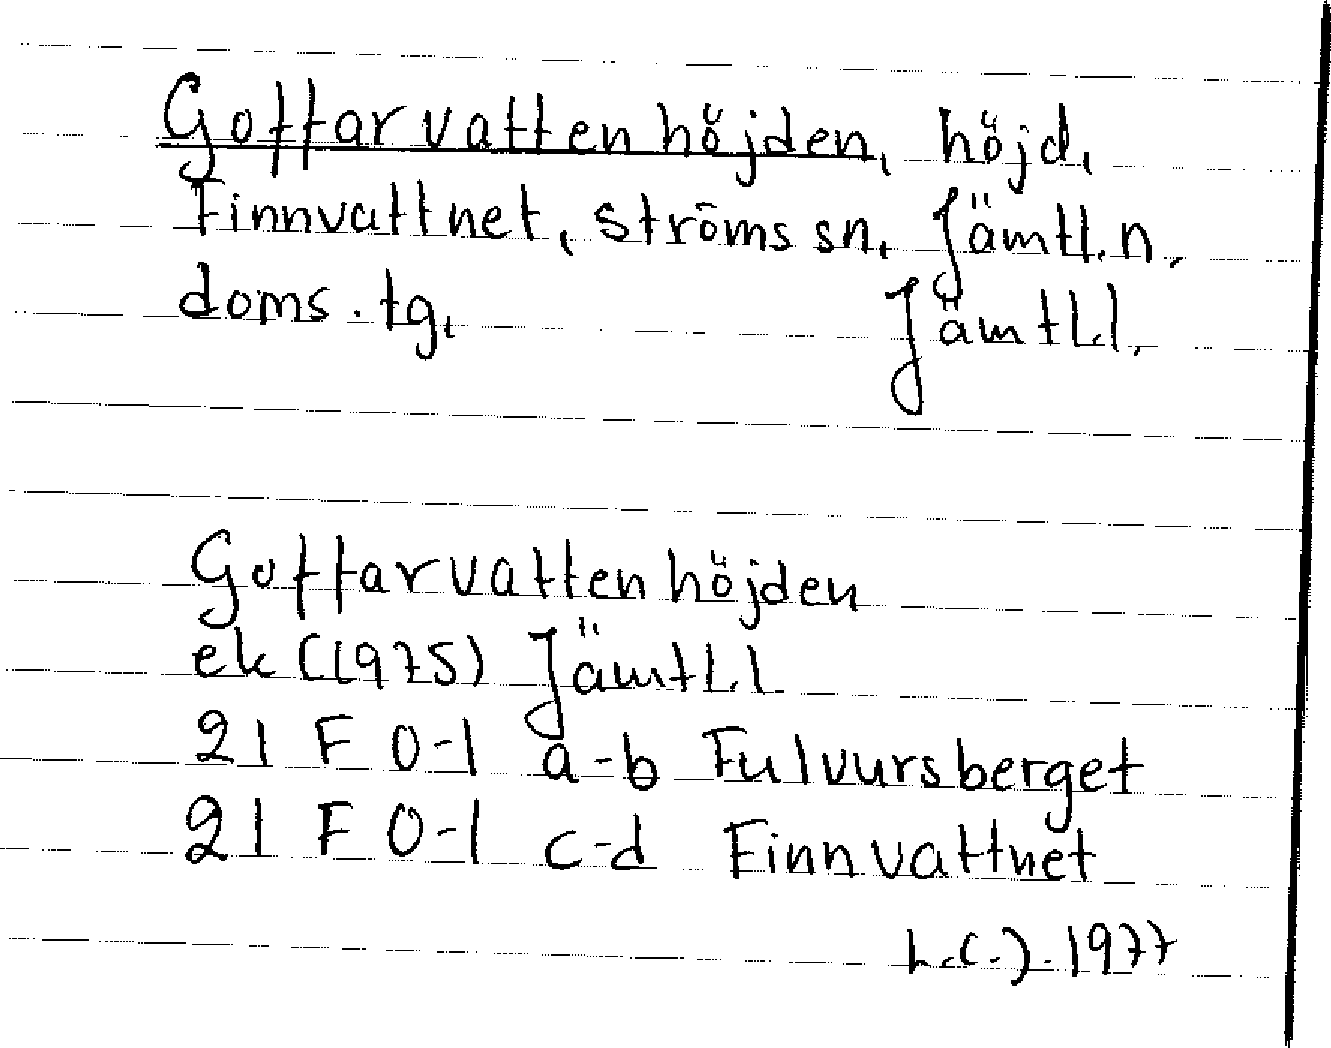 Gottarvattenhöjden, höjd,
Finnvattnet, Ströms sn, Jämtl.n.
doms.tg, Jämtl.l.
Gottarvattenhöjden
ek (1975) Jämtl.l
21 F 0-1 a-b Fulvursberget
21 F 0-1 c-d Finnvattnet
1977